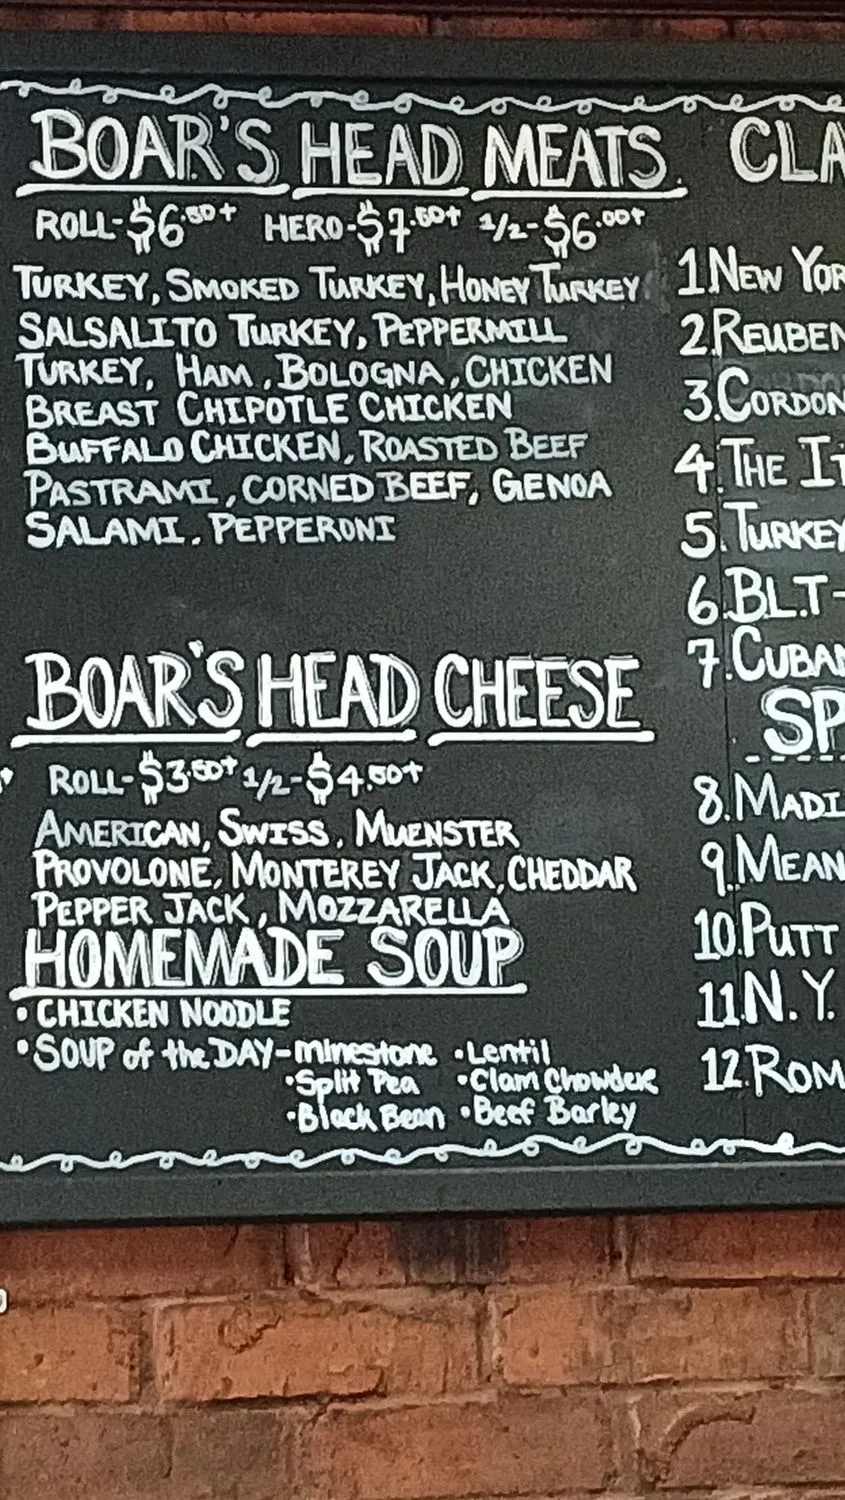 BOAR'S HEAD MEATS
ROLL-$6.50+ HERO-$7.50+ 1/2-$6.00+
TURKEY, SMOKED TURKEY, HONEY TURKEY
SALSALITO TURKEY, PEPPERMILL
TURKEY, HAM, BOLOGNA, CHICKEN
BREAST CHIPOTLE CHICKEN
BUFFALO CHICKEN, ROASTED BEEF
PASTRAMI, CORNED BEEF, GENOA
SALAMI, PEPPERONI
BOAR'S HEAD CHEESE
ROLL-$3.50+ 1/2-$4.50+
AMERICAN, SWISS, MUENSTER
PROVOLONE, MONTEREY JACK, CHEDDAR
PEPPER JACK, MOZZARELLA
HOMEMADE SOUP
• CHICKEN NOODLE
• SOUP of the DAY-minestone •Lentil
•Split Pea •Clam Chowder
•Black Bean •Beef Barley
CLA
1.NEW YOR
2.REUBEN
3.CORDON
4.THE IT
5.TURKEY
6.B.L.T-
7.CUBAN
SP
8.MADI
9.MEAN
10.PUTT
11.N.Y.
12.ROM